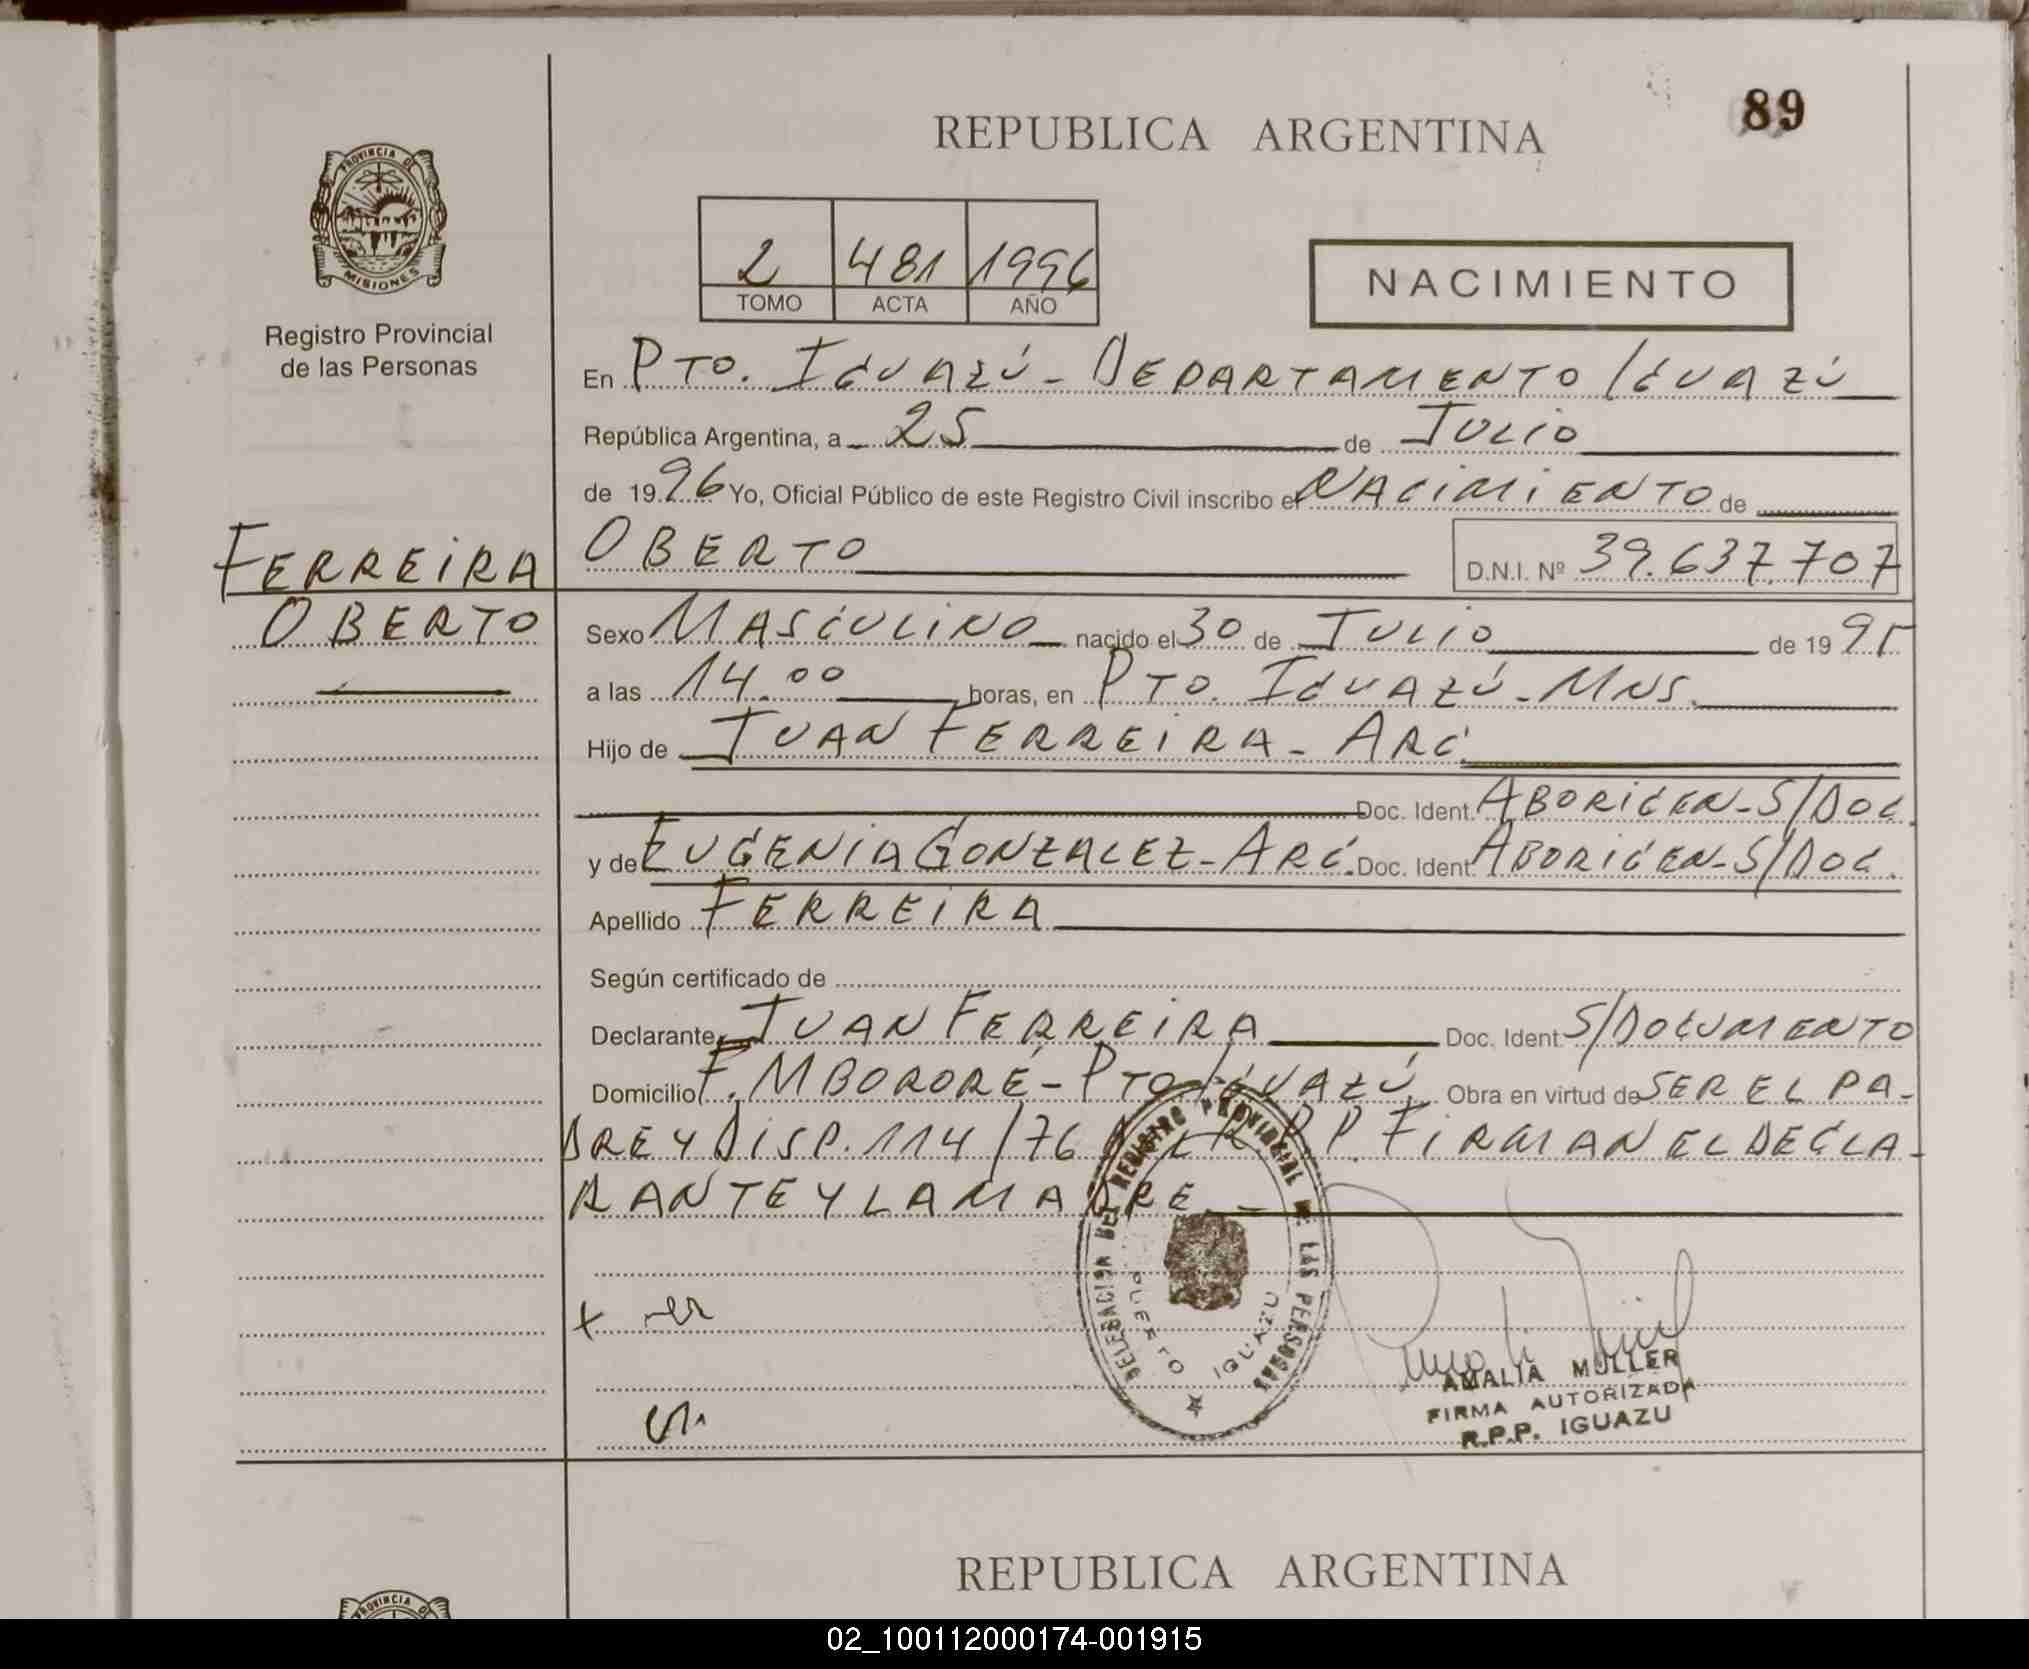 89
REPUBLICA ARGENTINA
PROVINCIA DE
MISIONES
Registro Provincial
de las Personas
2 481 1996
TOMO ACTA AÑO
NACIMIENTO
En PTO. IGUAZÚ - DEPARTAMENTO IGUAZÚ
República Argentina, a 25 de JULIO
de 1996 Yo, Oficial Público de este Registro Civil inscribo el NACIMIENTO de
FERREIRA
OBERTO
OBERTO D.N.I. Nº 39.637.707
Sexo MASCULINO nacido el 30 de JULIO de 1995
a las 14.00 horas, en PTO. IGUAZÚ - MNS.
Hijo de JUAN FERREIRA - ARG.
Doc. Ident. ABORIGEN - S/DOC.
y de EUGENIA GONZALEZ - ARG. Doc. Ident. ABORIGEN - S/DOC.
Apellido FERREIRA
Según certificado de
Declarante JUAN FERREIRA Doc. Ident. S/DOCUMENTO
Domicilio F. MBORORÉ - PTO IGUAZÚ Obra en virtud de SER EL PA-
DRE Y DISP. 114/76 R.P.P. FIRMAN EL DECLA-
RANTE Y LA MADRE
DELEGACION DEL REGISTRO PROVINCIAL DE LAS PERSONAS
PUERTO IGUAZU
AMALIA MULLER
FIRMA AUTORIZADA
R.P.P. IGUAZU
REPUBLICA ARGENTINA
PROVINCIA DE
02_100112000174-001915